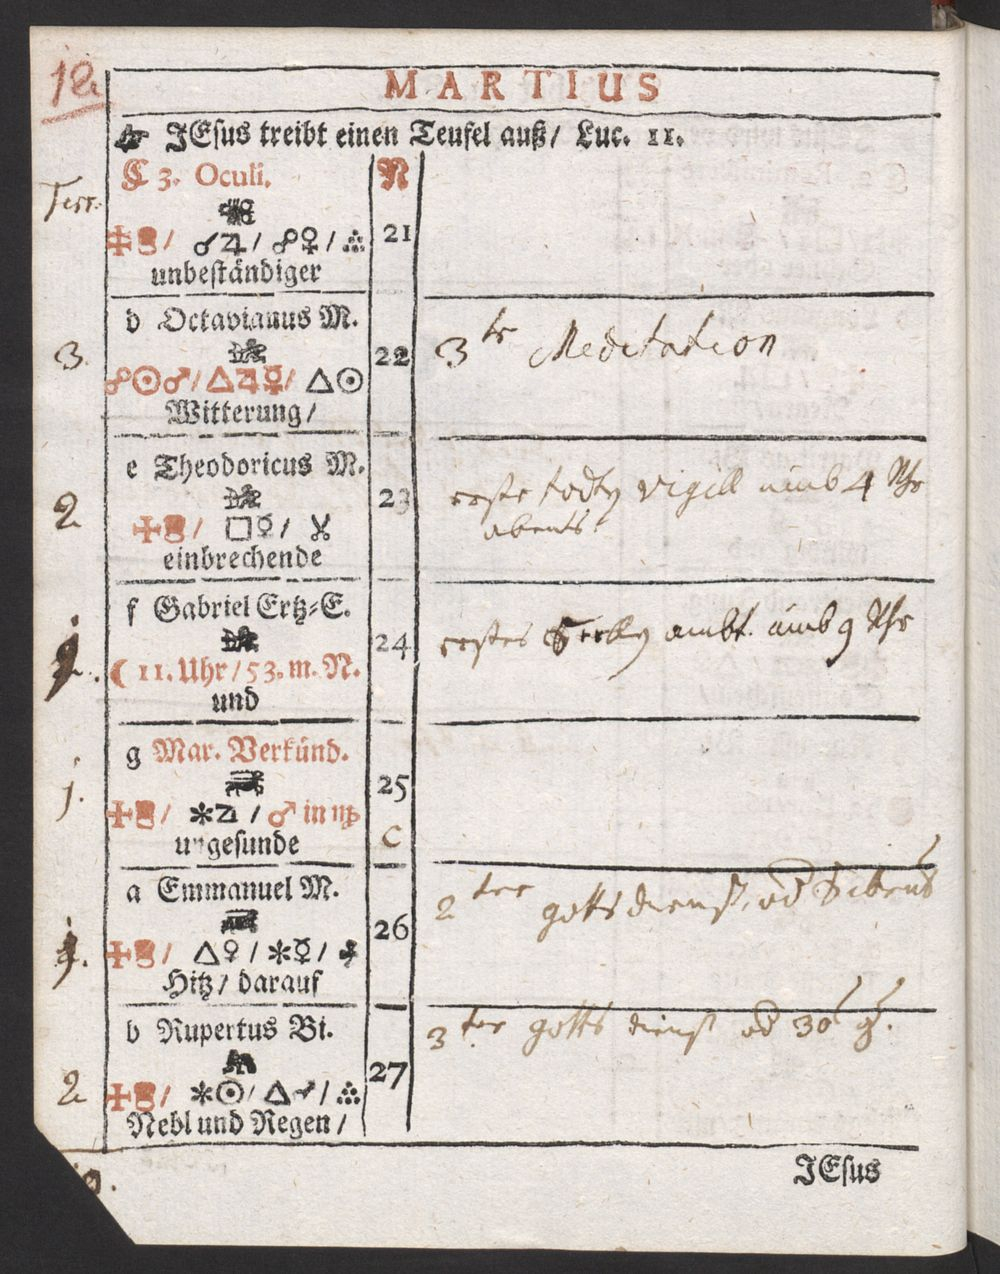 MARTIUS
☞ JEsus treibt einen Teufel auß/ Luc. 11.
Terr.
C 3. Oculi.
N
/ ☌♃/ ☍♀/
21
unbeständiger
d Octavianus M.
3.
22
3tr Meditation
☍☉♂/△♃☿/ △☉
Witterung/
e Theodoricus M.
2
23
erste vigill umb 4 Uhr
abents.
/ □☿/
einbrechende
f Gabriel Ertz=E.
24
erstes ambt. umb 9 Uhr
☾ 11. Uhr/53. m. N.
und
g Mar. Verkünd.
j.
25
/ ✻♃ / ♂ in ♍
C
ungesunde
a Emmanuel M.
26
2 ter gottsdienst
/ △♀/✻☿/
Hitz/ darauf
b Rupertus Bi.
3 ter gotts dienst
27
2
/ ✻☉/△♂/
Nebl und Regen/
JEsus